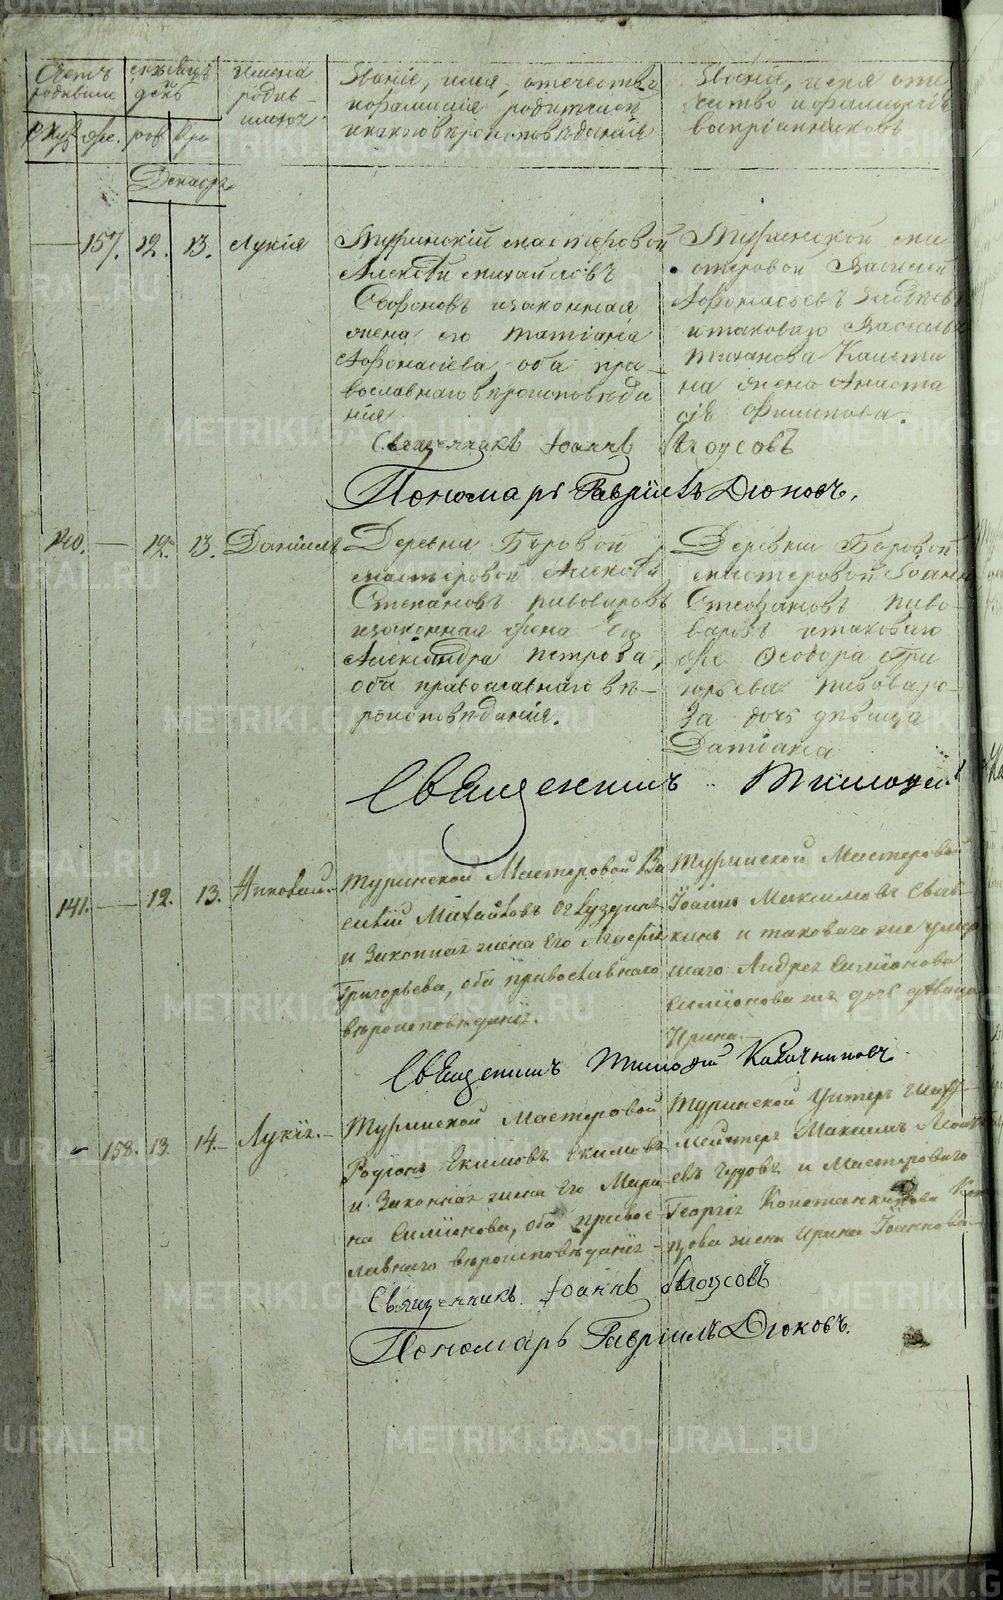 Счетъ родившихся
мѣсяцъ и день
Имена родившихся
Званіе, имя, отечество
и фамилія родителей
и какого вѣроисповѣданія
Званіе, имя отечество и фамилія
воспріемниковъ
муж. жен. рож. кре
Декабрь
157. 12. 13. Лукія
Туринскій мастеровой
Алексѣй Михайловъ
изаконная
жена его Татіана
Афонасіева оба пра-
вославнаго вѣроисповѣда
нія
Туринской ма
стеровой Василей
Афонасьевъ
итаковаго Василья
жена Анаста
сія Филипова.
Священникъ Іоаннъ Бѣлоусовъ
Пономарь Гавріилъ Дюковъ.
140. — 12. 13. Даніилъ
Деревни Боровой
мастеровой Алексѣй
Степановъ Пивоваровъ
изаконная жена Его
Александра Петрова,
оба православнаго вѣ-
роисповѣданія.
Деревни Боровой
мастеровой Іоанн
Стефановъ Пиво-
варовъ итаковаго
же Ѳеодора Гри
горьева Пивоваро-
ва дочь дѣвица
Татіана
Священникъ Тимоѳей
141. — 12. 13. Николай.
Туринской Мастеровой Ва
силій Михайловъ
и Законная жена Его
Григорьева, оба православнаго
вѣроисповѣданія.
Туринской Мастеровой
Іоаннъ Максимовъ
и таковаго же умер
шаго Андрея Симіонова
Симіонова жъ дочь дѣвица
Ирина.
Священникъ Тимоѳей Калачниковъ.
158. 13. 14. Лукія.
Туринской Мастеровой
Родіонъ Екимовъ Екимовъ
и Законная жена Его Мари
на Симіонова, оба правос-
лавнаго вѣроисповѣданія
Туринской Унтеръ Шахт-
мейстеръ Максимъ
евъ Чудовъ и Мастероваго
Георгія Константинова
цова жена Ирина Іоаннова.
Священникъ Іоаннъ Бѣлоусовъ
Пономарь Гавріилъ Дюковъ.
METRIKI.GASO-URAL.RU